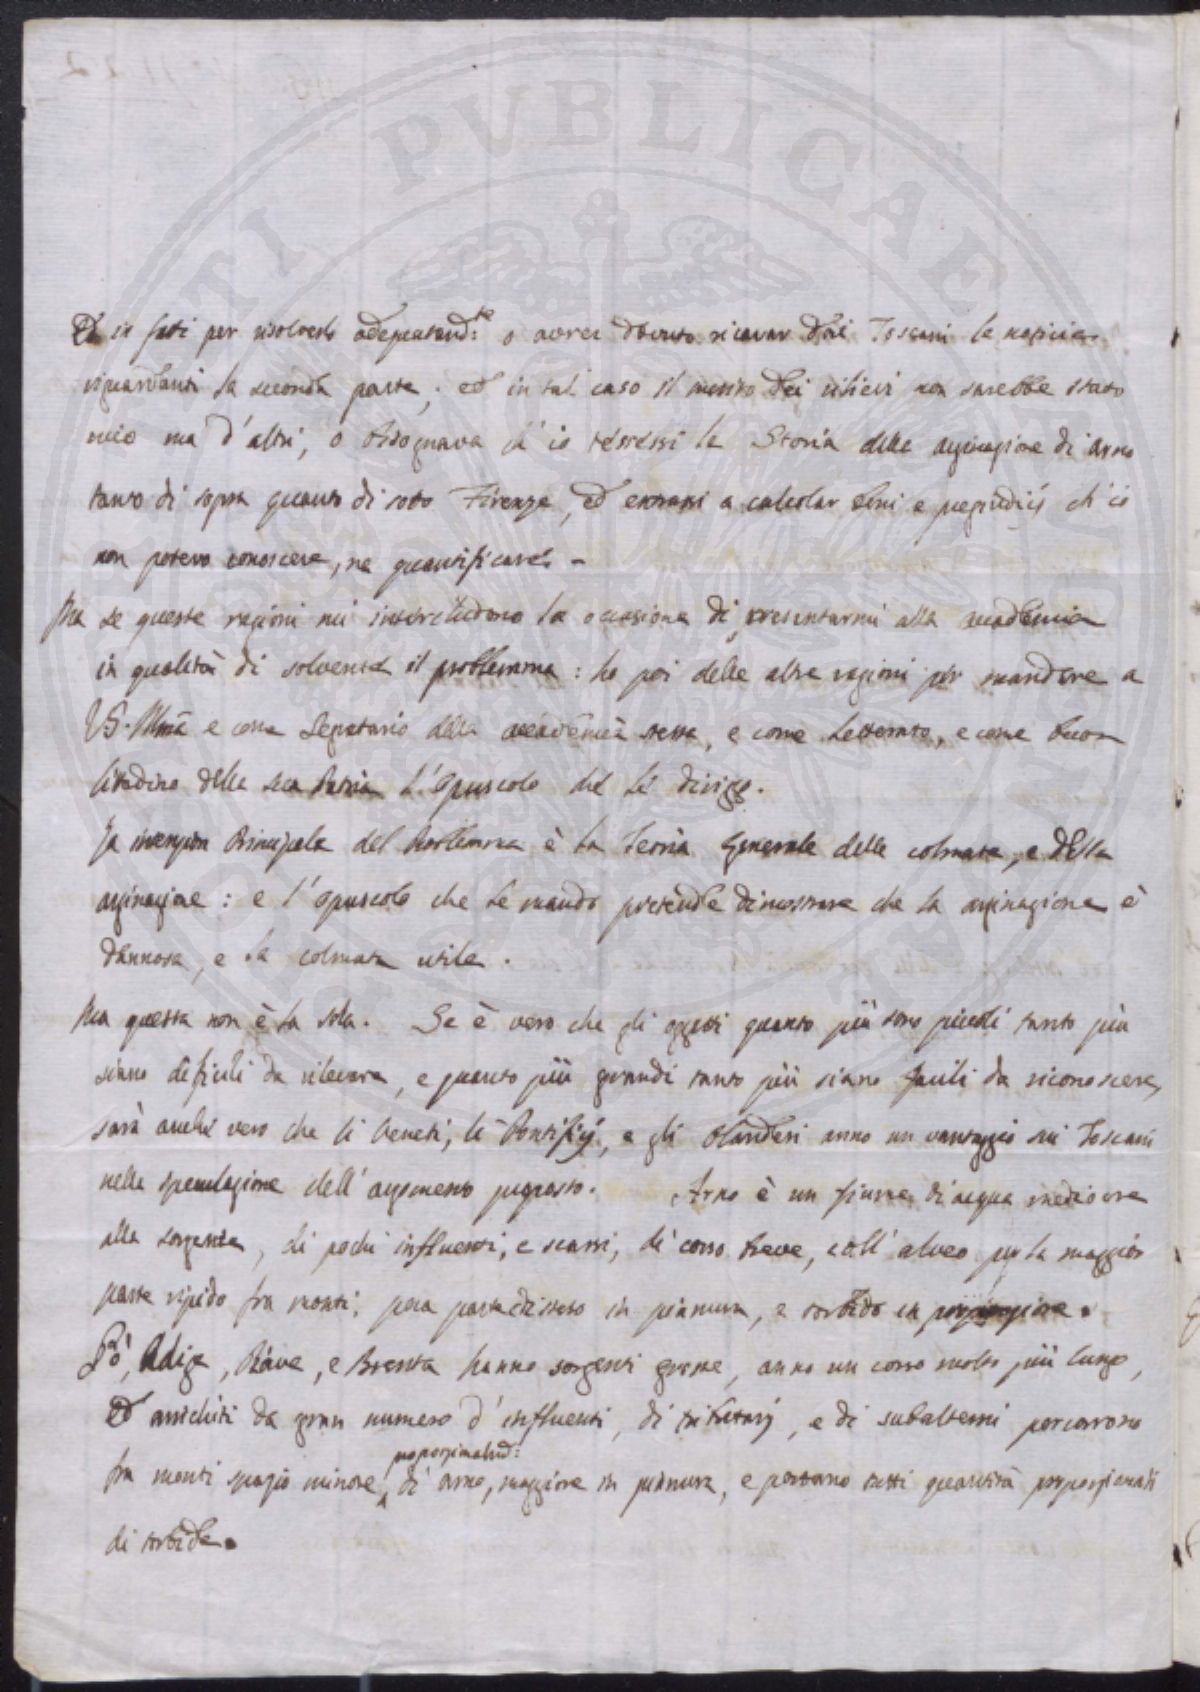 PUBLICAE
Ed in fatti per risolverlo adequatamd:te o avrei dovuto ricavar dai Toscani le notizie
riguardanti la seconda parte, ed in tal caso il merito dei rilievi non sarebbe stato
mio ma d'altri, o bisognava ch' io tessessi la Storia della arginazione di Arno
tanto di sopra quanto di sotto Firenze, ed entrassi a calcolar beni e pregiudicij ch' io
non potevo conoscere, ne quantificarli -
Ma se queste ragioni mi intercludono la occasione di presentarmi alla accademia
in qualità di solvente il problemma: ho poi delle altre ragioni per mandare a
VS. Illma e come Segretario della accademia stessa, e come Letterato, e come buon
Cittadino della sua Patria L'Opuscolo che Le dirigo.
La Principale del Problemma è la Teoria Generale delle colmate, e della
arginazione: e l'opuscolo che Le mando pretende dimostrare che la arginazione è
dannosa, e la colmata utile.
Ma questa non è la sola. Se è vero che gli oggetti quanto più sono piccoli tanto più
siano dificili da rilevare, e quanto più grandi tanto più siano facili da riconoscere,
sarà anche vero che li Veneti, li Pontificij, e gli Olandesi anno un vantaggio sui Toscani
nella speculazione dell' argomento proposto. Arno è un fiume di acqua mediocre
alla sorgente, di pochi influenti, e scarsi, di corso breve, coll' alveo per la maggior
parte ripido fra monti, poca parte disteso in pianura, e torbido in proporzione.
Pò, Adige, Piave, e Brenta hanno sorgenti grosse, anno un corso molto più lungo,
ed arrichiti da gran numero d'influenti, di tributarj, e di subalterni percorrono
proporzionatamd:
fra monti spazio minore, di arno, maggiore in pianura, e portano tutti quantità proporzionali
di torbide.